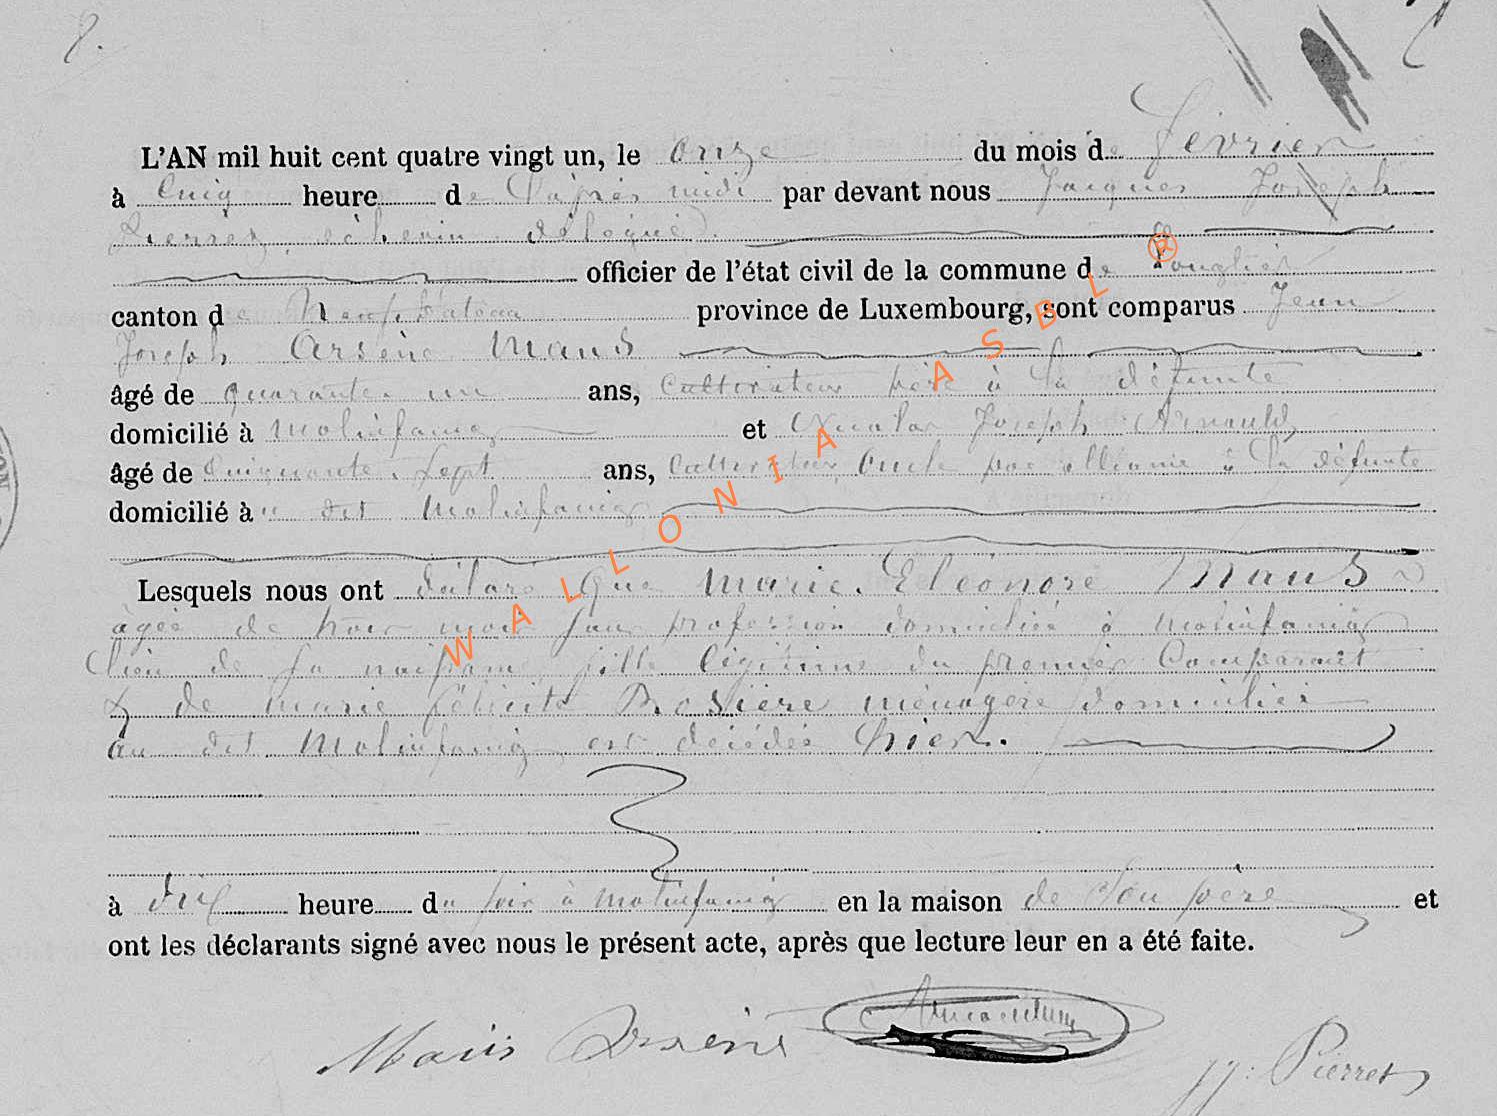 8.
L'AN mil huit cent quatre vingt un, le onze du mois de Février
à cinq heure de l'après midi par devant nous Jacques Joseph
Pierret, échevin délégué
officier de l'état civil de la commune de Longlier
canton de Neufchâteau province de Luxembourg, sont comparus Jean
Joseph Arsène Maus
âgé de quarante un ans, Cultivateur père à la défunte
domicilié à Molinfaing et Nicolas Joseph Arnould,
âgé de Cinquante sept ans, Cultivateur, Oncle par alliance à la défunte
domicilié à dit Molinfaing
Lesquels nous ont déclaré que Marie Eléonore Maus
âgée de trois mois sans profession domiciliée à Molinfaing
lieu de sa naissance, fille légitime du premier Comparant
& de Marie Félicité Rosière ménagère domiciliée
au dit Molinfaing est décédée hier.
à dix heure du soir à Molinfaing en la maison de son père et
ont les déclarants signé avec nous le présent acte, après que lecture leur en a été faite.
Maus Arsène
JJ: Pierret
WALLONIA ASBL ®